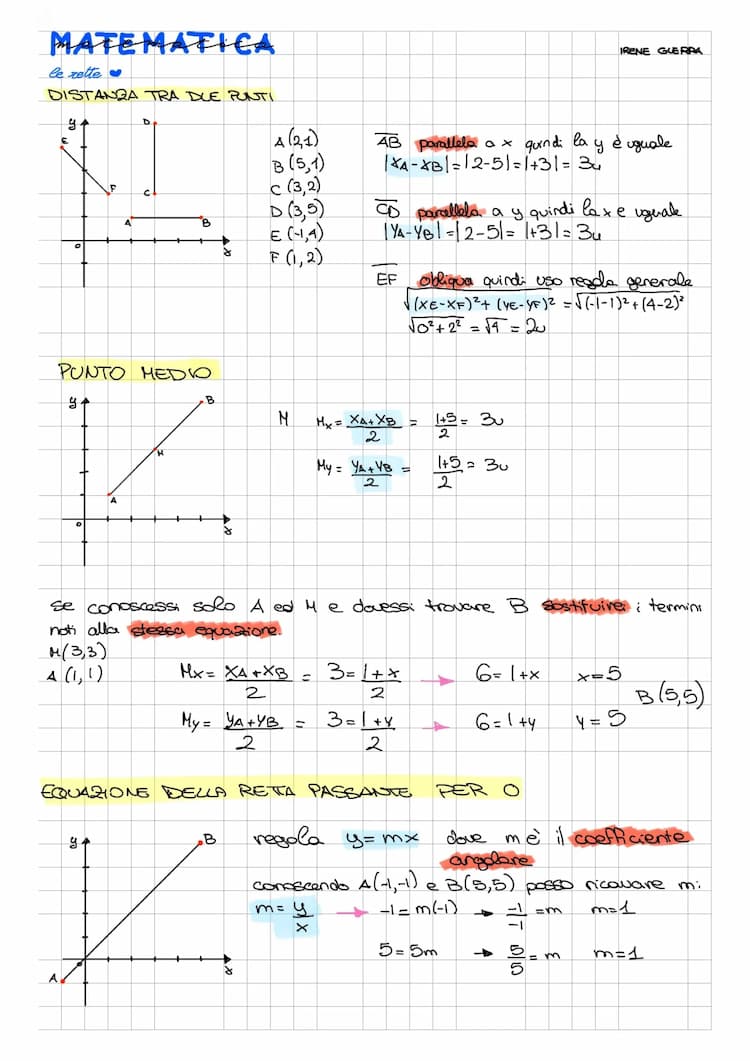 MATEMATICA
IRENE GUERRA
le rette
DISTANZA TRA DUE PUNTI
y
E
F
D
C
A
B
0
x
A (2,1)
B (5,1)
C (3,2)
D (3,5)
E (-1,4)
F (1,2)
AB parallela a x quindi la y è uguale
|XA-XB|=|2-5|=|+3|= 3u
CD parallela a y quindi la x e uguale
|YA-YB|=|2-5|=|+3|= 3u
EF obliqua quindi uso regola generale
√(XE-XF)²+(YE-YF)² =√(-1-1)²+(4-2)²
√0²+2² = √4 = 2u
PUNTO MEDIO
y
B
M
A
0
x
M Mx= XA+XB/2 = 1+5/2 = 3u
My= YA+YB/2 = 1+5/2 = 3u
Se conoscessi solo A ed M e dovessi trovare B sostituirei i termini
noti alla stessa equazione.
M(3,3)
A (1,1)
Mx= XA+XB/2 = 3=1+x/2 → 6=1+x x=5
My= YA+YB/2 = 3=1+y/2 → 6=1+y y=5
B(5,5)
EQUAZIONE DELLA RETTA PASSANTE PER O
y
B
A
x
regola y=mx dove m è il coefficiente
angolare
conoscendo A(-1,-1) e B(5,5) posso ricavare m:
m= y/x → -1=m(-1) → -1/-1 =m m=1
5=5m → 5/5 = m m=1